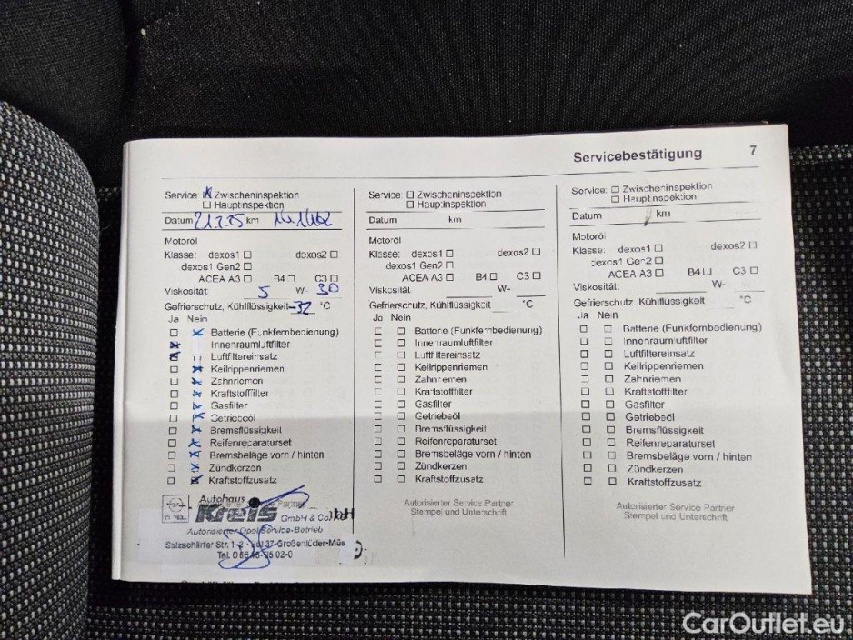 Servicebestätigung 7
Service: ☒ Zwischeninspektion
☐ Hauptinspektion
Datum km
Motoröl
Klasse: dexos1 ☐ dexos2 ☐
dexos1 Gen2 ☐
ACEA A3 ☐ B4 ☐ C3 ☐
Viskosität: 5 W- 30
Gefrierschutz, Kühlflüssigkeit -32 °C
Ja Nein
Batterie (Funkfernbedienung)
Innenraumluftfilter
Luftfiltereinsatz
Keilrippenriemen
Zahnriemen
Kraftstofffilter
Gasfilter
Getriebeöl
Bremsflüssigkeit
Reifenreparaturset
Bremsbeläge vorn / hinten
Zündkerzen
Kraftstoffzusatz
Autohaus
Kreis GmbH & Co.
Autorisierter Opel Service-Betrieb
Salzschlirfer Str. 1-2 - 36137-Großenlüder-Müs
Service: ☐ Zwischeninspektion
☐ Hauptinspektion
Datum km
Motoröl
Klasse: dexos1 ☐ dexos2 ☐
dexos1 Gen2 ☐
ACEA A3 ☐ B4 ☐ C3 ☐
Viskosität: W-
Gefrierschutz, Kühlflüssigkeit °C
Ja Nein
☐ ☐ Batterie (Funkfernbedienung)
☐ ☐ Innenraumluftfilter
☐ ☐ Luftfiltereinsatz
☐ ☐ Keilrippenriemen
☐ ☐ Zahnriemen
☐ ☐ Kraftstofffilter
☐ ☐ Gasfilter
☐ ☐ Getriebeöl
☐ ☐ Bremsflüssigkeit
☐ ☐ Reifenreparaturset
☐ ☐ Bremsbeläge vorn / hinten
☐ ☐ Zündkerzen
☐ ☐ Kraftstoffzusatz
Autorisierter Service Partner
Stempel und Unterschrift
Service: ☐ Zwischeninspektion
☐ Hauptinspektion
Datum km
Motoröl
Klasse: dexos1 ☐ dexos2 ☐
dexos1 Gen2 ☐
ACEA A3 ☐ B4 ☐ C3 ☐
Viskosität: W-
Gefrierschutz, Kühlflüssigkeit °C
Ja Nein
☐ ☐ Batterie (Funkfernbedienung)
☐ ☐ Innenraumluftfilter
☐ ☐ Luftfiltereinsatz
☐ ☐ Keilrippenriemen
☐ ☐ Zahnriemen
☐ ☐ Kraftstofffilter
☐ ☐ Gasfilter
☐ ☐ Getriebeöl
☐ ☐ Bremsflüssigkeit
☐ ☐ Reifenreparaturset
☐ ☐ Bremsbeläge vorn / hinten
☐ ☐ Zündkerzen
☐ ☐ Kraftstoffzusatz
Autorisierter Service Partner
Stempel und Unterschrift
CarOutlet.eu